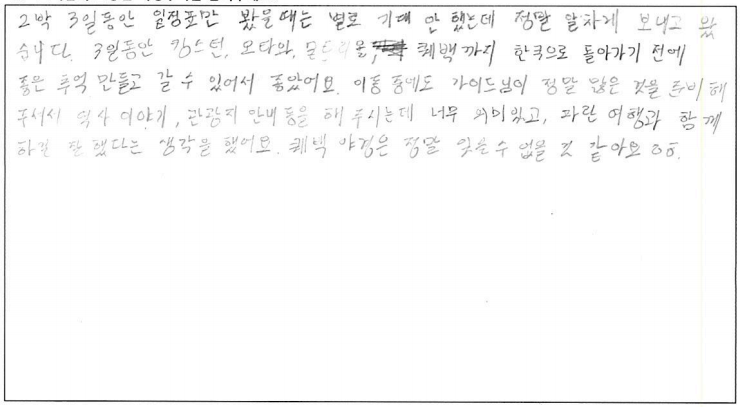 2박 3일동안 일정표만 봤을때는 별로 기대 안 했는데 정말 알차게 보내고 왔
습니다. 3일동안 킹스턴, 오타와, 몬트리올, 퀘백까지 한국으로 돌아가기 전에
좋은 추억 만들고 갈 수 있어서 좋았어요. 이동 중에도 가이드님이 정말 많은 것을 준비해
주셔서 역사 이야기, 관광지 안내 등을 해 주시는데 너무 의미있고, 파란 여행과 함께
하길 잘 했다는 생각을 했어요. 퀘백 야경은 정말 잊을 수 없을 것 같아요 ㅎㅎ.